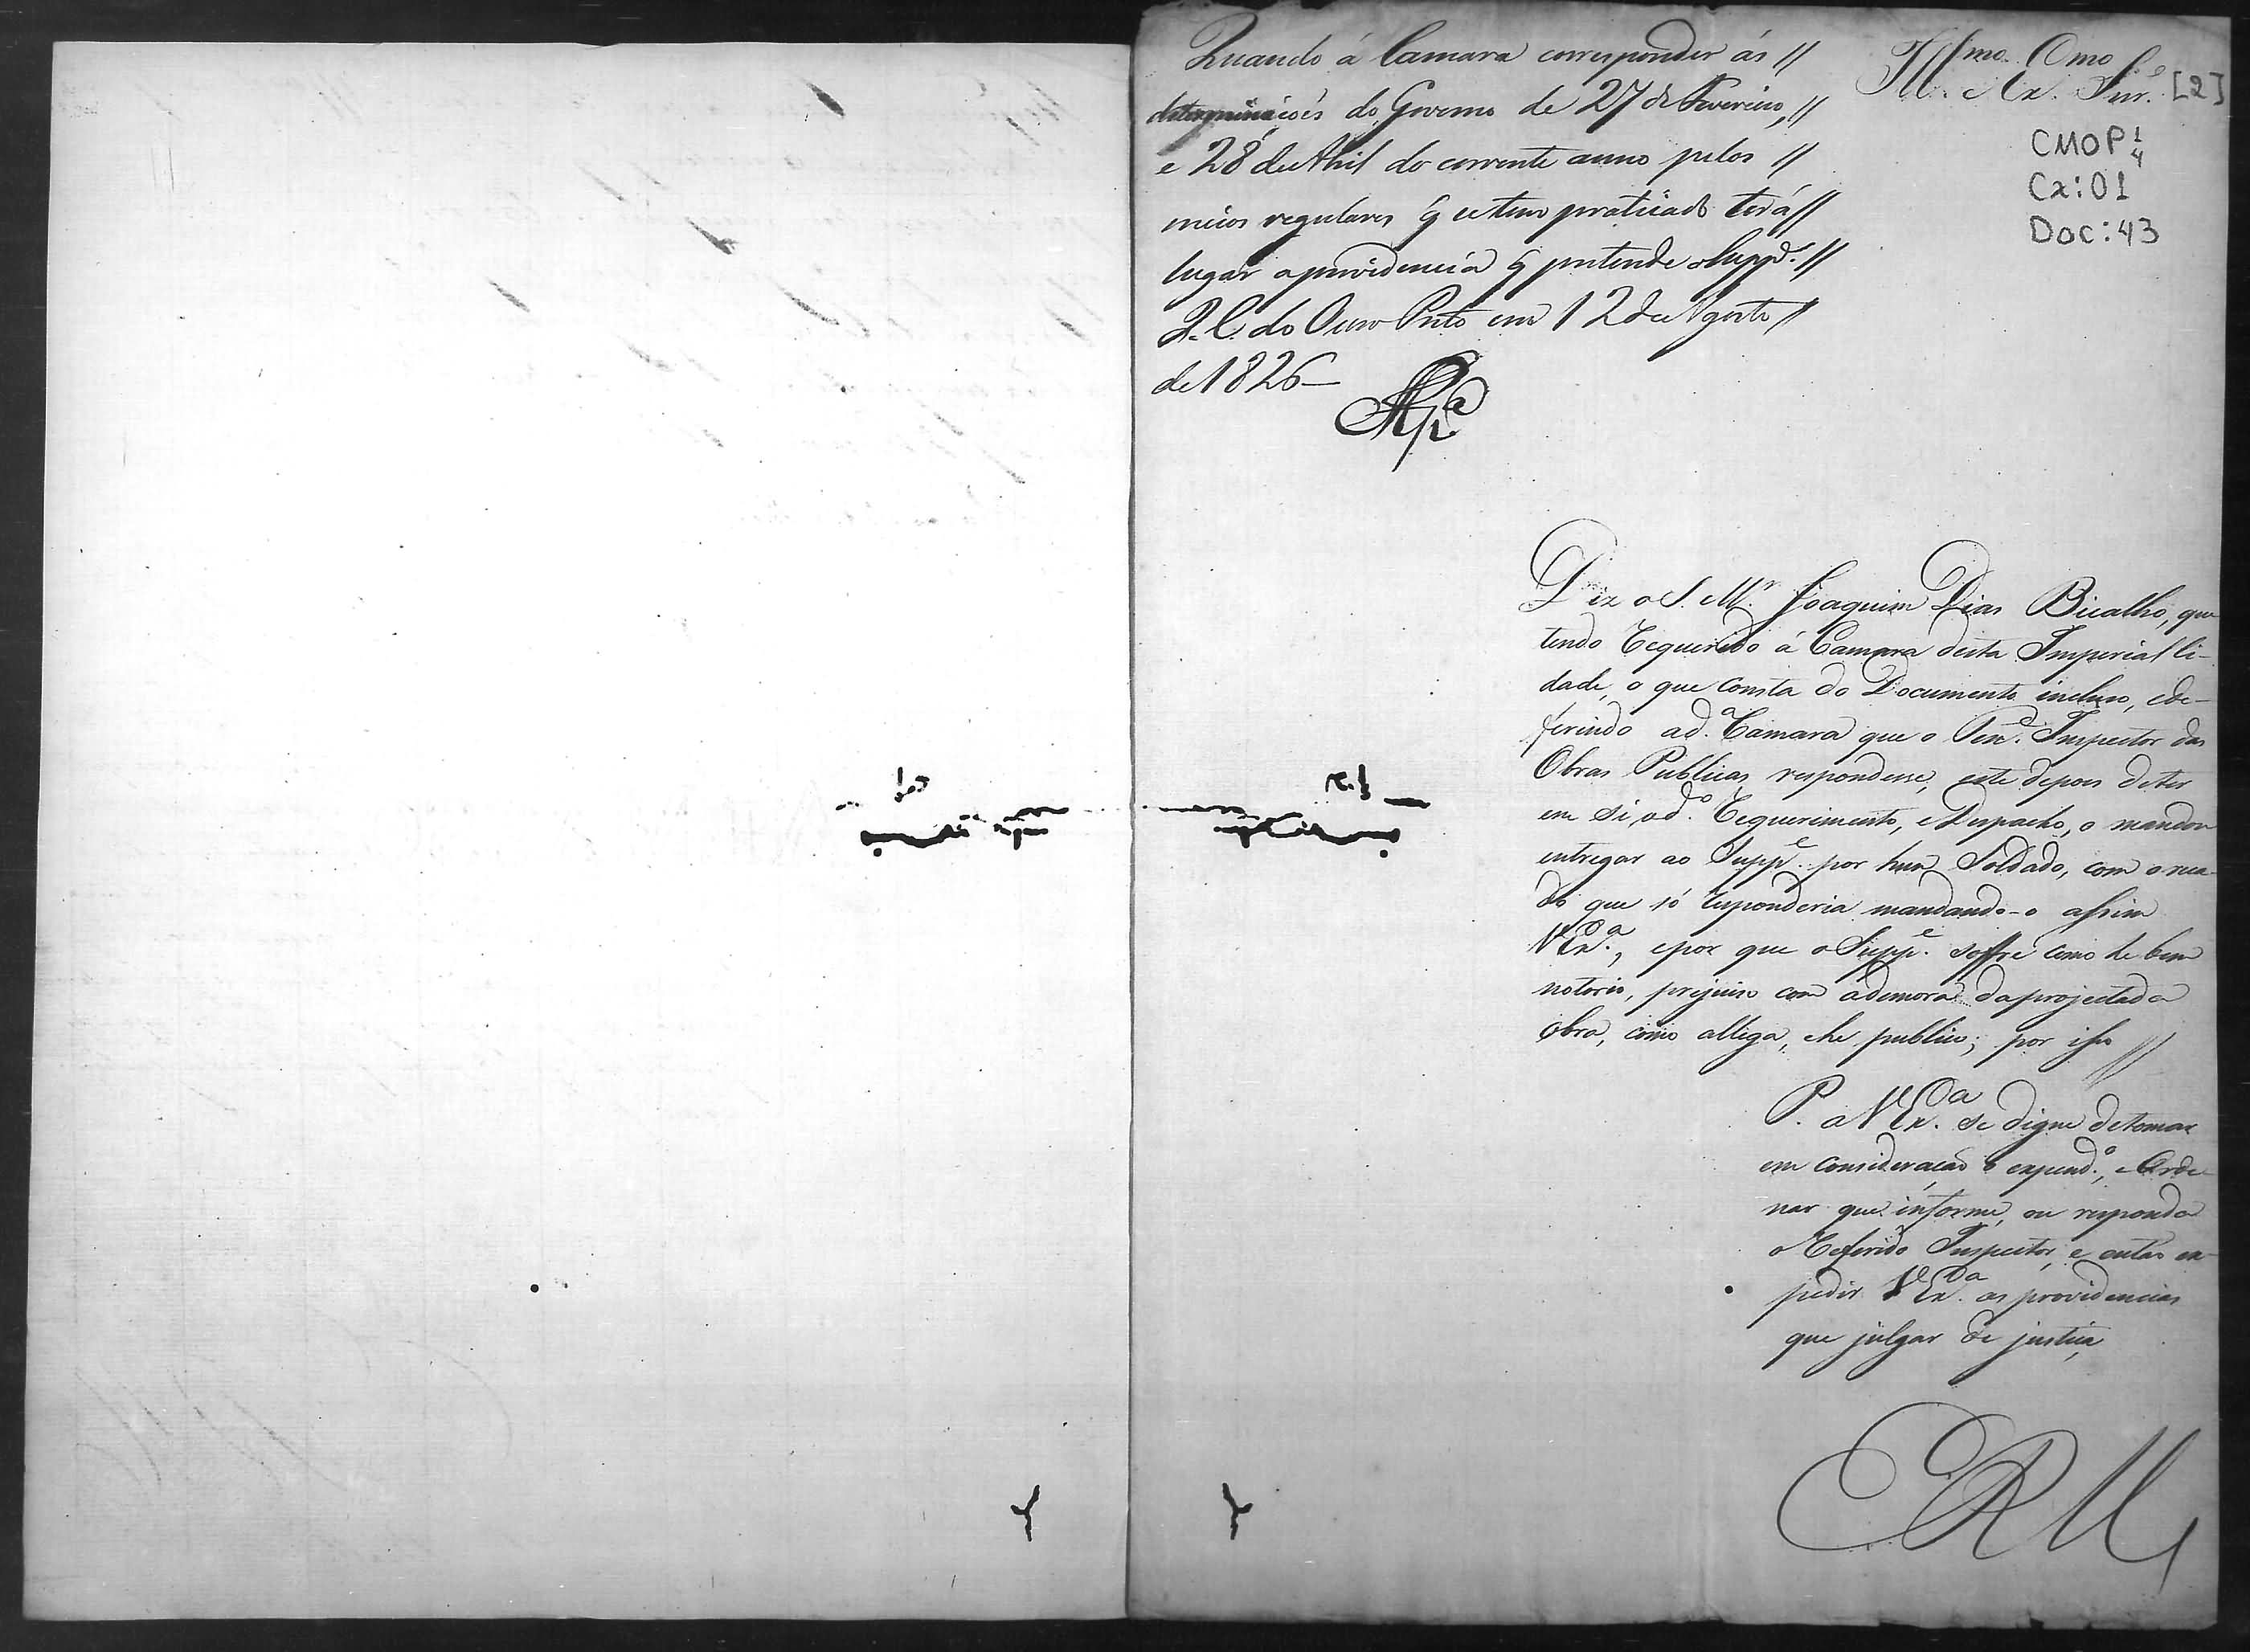 Quando á Camara corresponder ás //
determinaçoẽs do Governo de 27 de Fevereiro, //
e 28 de Abril do corrente anno pelos //
meios regulares q̃ se tem praticado terá //
lugar a providencia q̃ pertende o Supp.e //
P. C. do Ouro Preto em 12 de Agosto //
de 1826 —
Ill.mo Ex.mo Snr.
[2]
CMOP 1/4
Cx: 01
Doc: 43
Diz o S. M.r Joaquim Dias Bicalho, que
tendo Requerido á Camara desta Imperial Ci-
dade, o que consta do Documento incluso, e de-
ferindo a d.a Camara que o Ten.e Inspector das
Obras Publicas respondesse, este depois de ter
em si o d.o Requerimento, e Despacho, o mandou
entregar ao Supp.e por hum Soldado, com o reca-
do que só responderia mandando-o assim
V Ex.a, e por que o Supp.e soffre como he bem
notorio, prejuiso com a demora da projectada
obra, como allega, e he publico; por isso //
P. a V Ex.a se digne de tomar
em consideração o expend.o, e Orde-
nar que informe, ou responda
o Referido Inspector, e então ex-
pedir V Ex.a as providencias
que julgar de justiça,
E R M